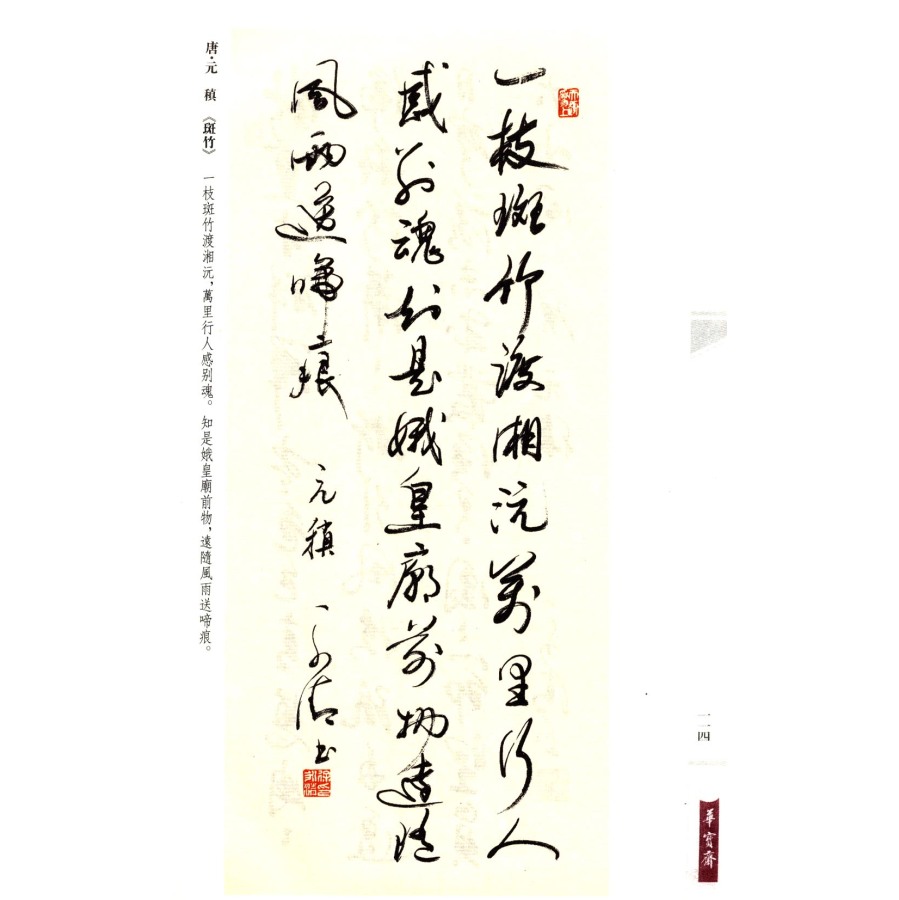 一枝斑竹渡湘沅萬里行人
感別魂知是娥皇廟前物遠隨
風雨送啼痕 元稹 書
唐·元 稹 《斑竹》 一枝斑竹渡湘沅，萬里行人感别魂。知是娥皇廟前物，遠隨風雨送啼痕。
二四
華寶齋